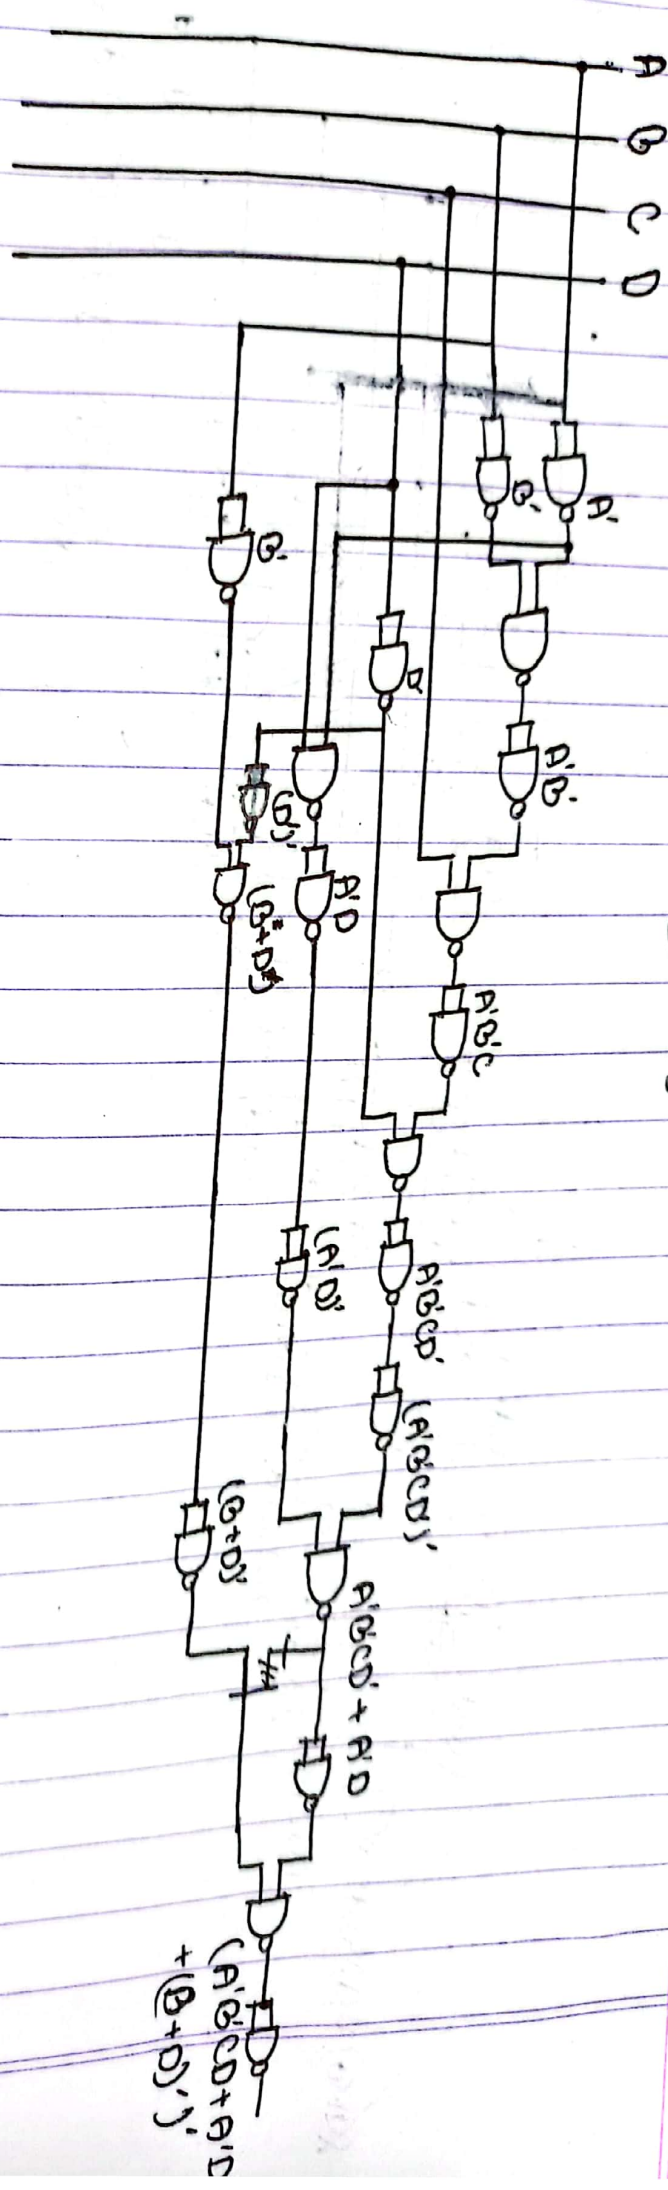 A
B
C
D
A'
B'
A'B'
A'B'C
D'
B'
A'D
(B+D)
A'B'CD'
(A'D)'
(A'B'CD')'
(B+D)'
A'B'CD' + A'D
(A'B'CD + A'D
+ (B+D)')'